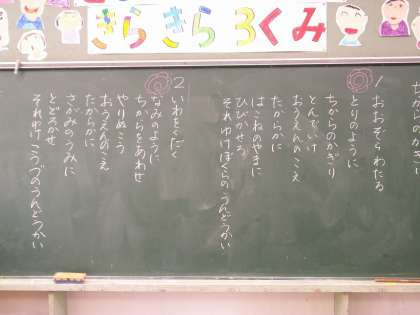 きらきら3くみ
1 おおぞらわたる
とりのように
ちからのかぎり
とんでいけ
おうえんのこえ
たからかに
はこねのやまに
ひびかせろ
それゆけぼくらのうんどうかい
2 いわをくだく
なみのように
ちからをあわせ
やりぬこう
おうえんのこえ
たからかに
さがみのうみに
とどかせ
それゆけこうづのうんどうかい